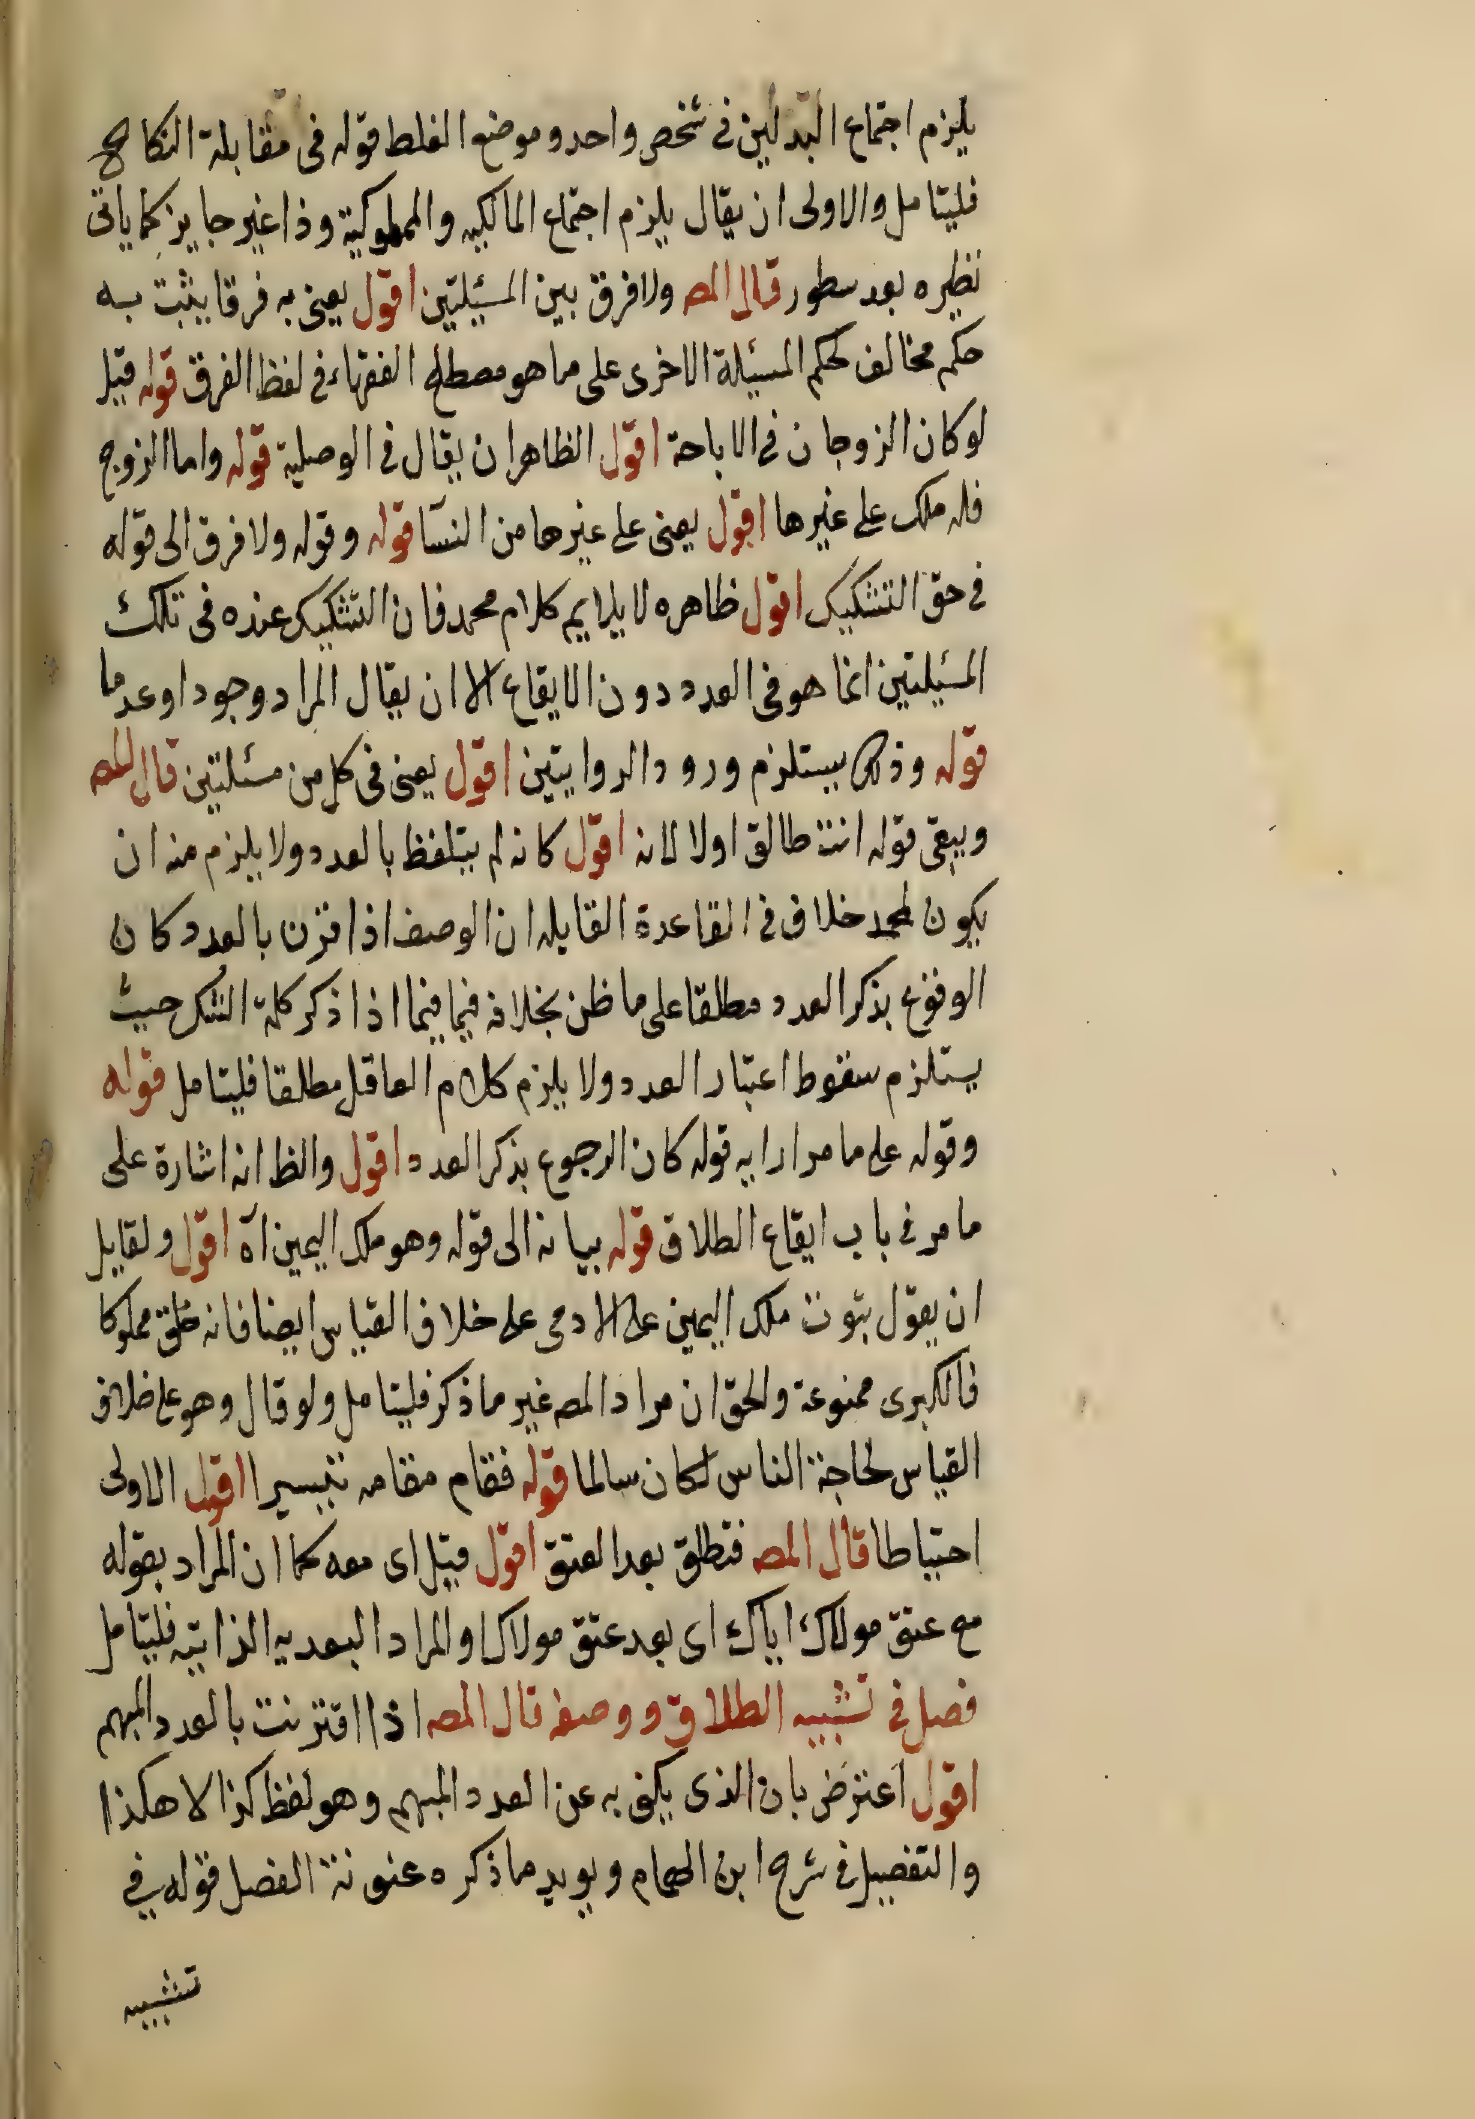 يلزم اجتماع البدلين في شخص واحد وموضع الغلط قوله فى مقابلة النكاح
فليتامل والاولى ان يقال يلزم اجتماع المالكيه والمملوكية وذا غير جايز كما ياتى
نظيره بعد سطور قال المص ولا فرق بين المسئيلتين اقول يعنى به فرقا يثبت به
حكم مخالف لحكم المسئيلة الاخرى على ما هو مصطلح الفقهاء في لفظ الفرق قوله قيل
لو كان الزوجان في الاباحة اقول الظاهر ان يقال في الوصلية قوله واما الزوج
فله ملك على غيرها اقول يعنى على غيرها من النسآ قوله وقوله ولا فرق الى قوله
في حق التشكيك اقول ظاهره لا يلايم كلام محمد فان التشكيك عنده فى تلك
المسئيلتين انما هو فى العدد دون الايقاع الا ان يقال المراد وجودا وعدما
قوله وذلك يستلزم ورود الروايتين اقول يعنى فى كل من مسئلتين قال المص
ويبقى قوله انت طالق اولا لانه اقول كانه لم يتلفظ بالعدد ولا يلزم منه ان
يكون لمحمد خلاف في القاعدة القايله ان الوصف اذا قرن بالعدد كان
الوقوع بذكر العدد مطلقا على ما ظن بخلافه فيما فيما اذا ذكر كلمة الشك حيث
يستلزم سقوط اعتبار العدد ولا يلزم كلام العاقل مطلقا فليتامل قوله
وقوله على ما مر اراد به قوله كان الرجوع بذكر العدد اقول والظ انه اشارة على
ما مر في باب ايقاع الطلاق قوله بيانه الى قوله وهو ملك اليمين آه اقول ولقايل
ان يقول بثوت ملك اليمين على الادمى على خلاف القياس ايضا فانه خلق مملوكا
فالكبرى ممنوعة والحق ان مراد المص غير ما ذكر فليتامل ولو قال وهو على خلاف
القياس لحاجة الناس لكان سالما قوله فقام مقامه تيسيرا اقول الاولى
احتياطا قال المص فتطلق بعد العتق اقول قيل اى معه كما ان المراد بقوله
مع عتق مولاك اياك اى بعد عتق مولاك او المراد البعديه الذاتيه فليتامل
فصل في تشبيه الطلاق ووصفه قال المص اذا اقترنت بالعدد المبهم
اقول اعترض بان الذى يكنى به عن العدد المبهم وهو لفظ كذا لا هكذا
والتفصيل في شرح ابن الهمام ويويد ما ذكره عنونة الفصل قوله في
تشبيه